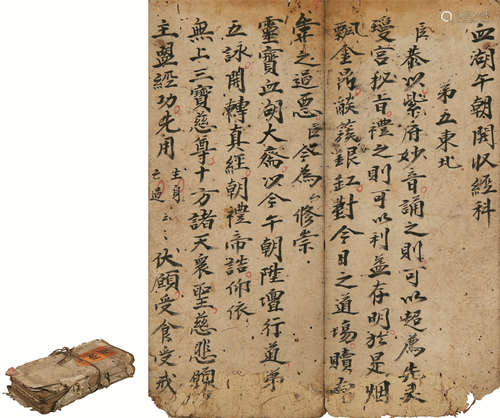 血湖午朝開收經科
第五東北
臣恭以紫府妙音誦之則可以超薦先灵
瓊宮秘旨禮之則可以利益存明於是烟
飄金鼎燄蓀銀缸對今日之道場贖
無之過惡臣今為厶修崇
靈寶血湖大齋以今午朝陞壇行道第
五詠開轉真經朝禮帝誥仰依
無上三寶慈尊十方諸天眾聖慈悲願
主盟經功先用 生身亡過 厶云 伏願受食受戒